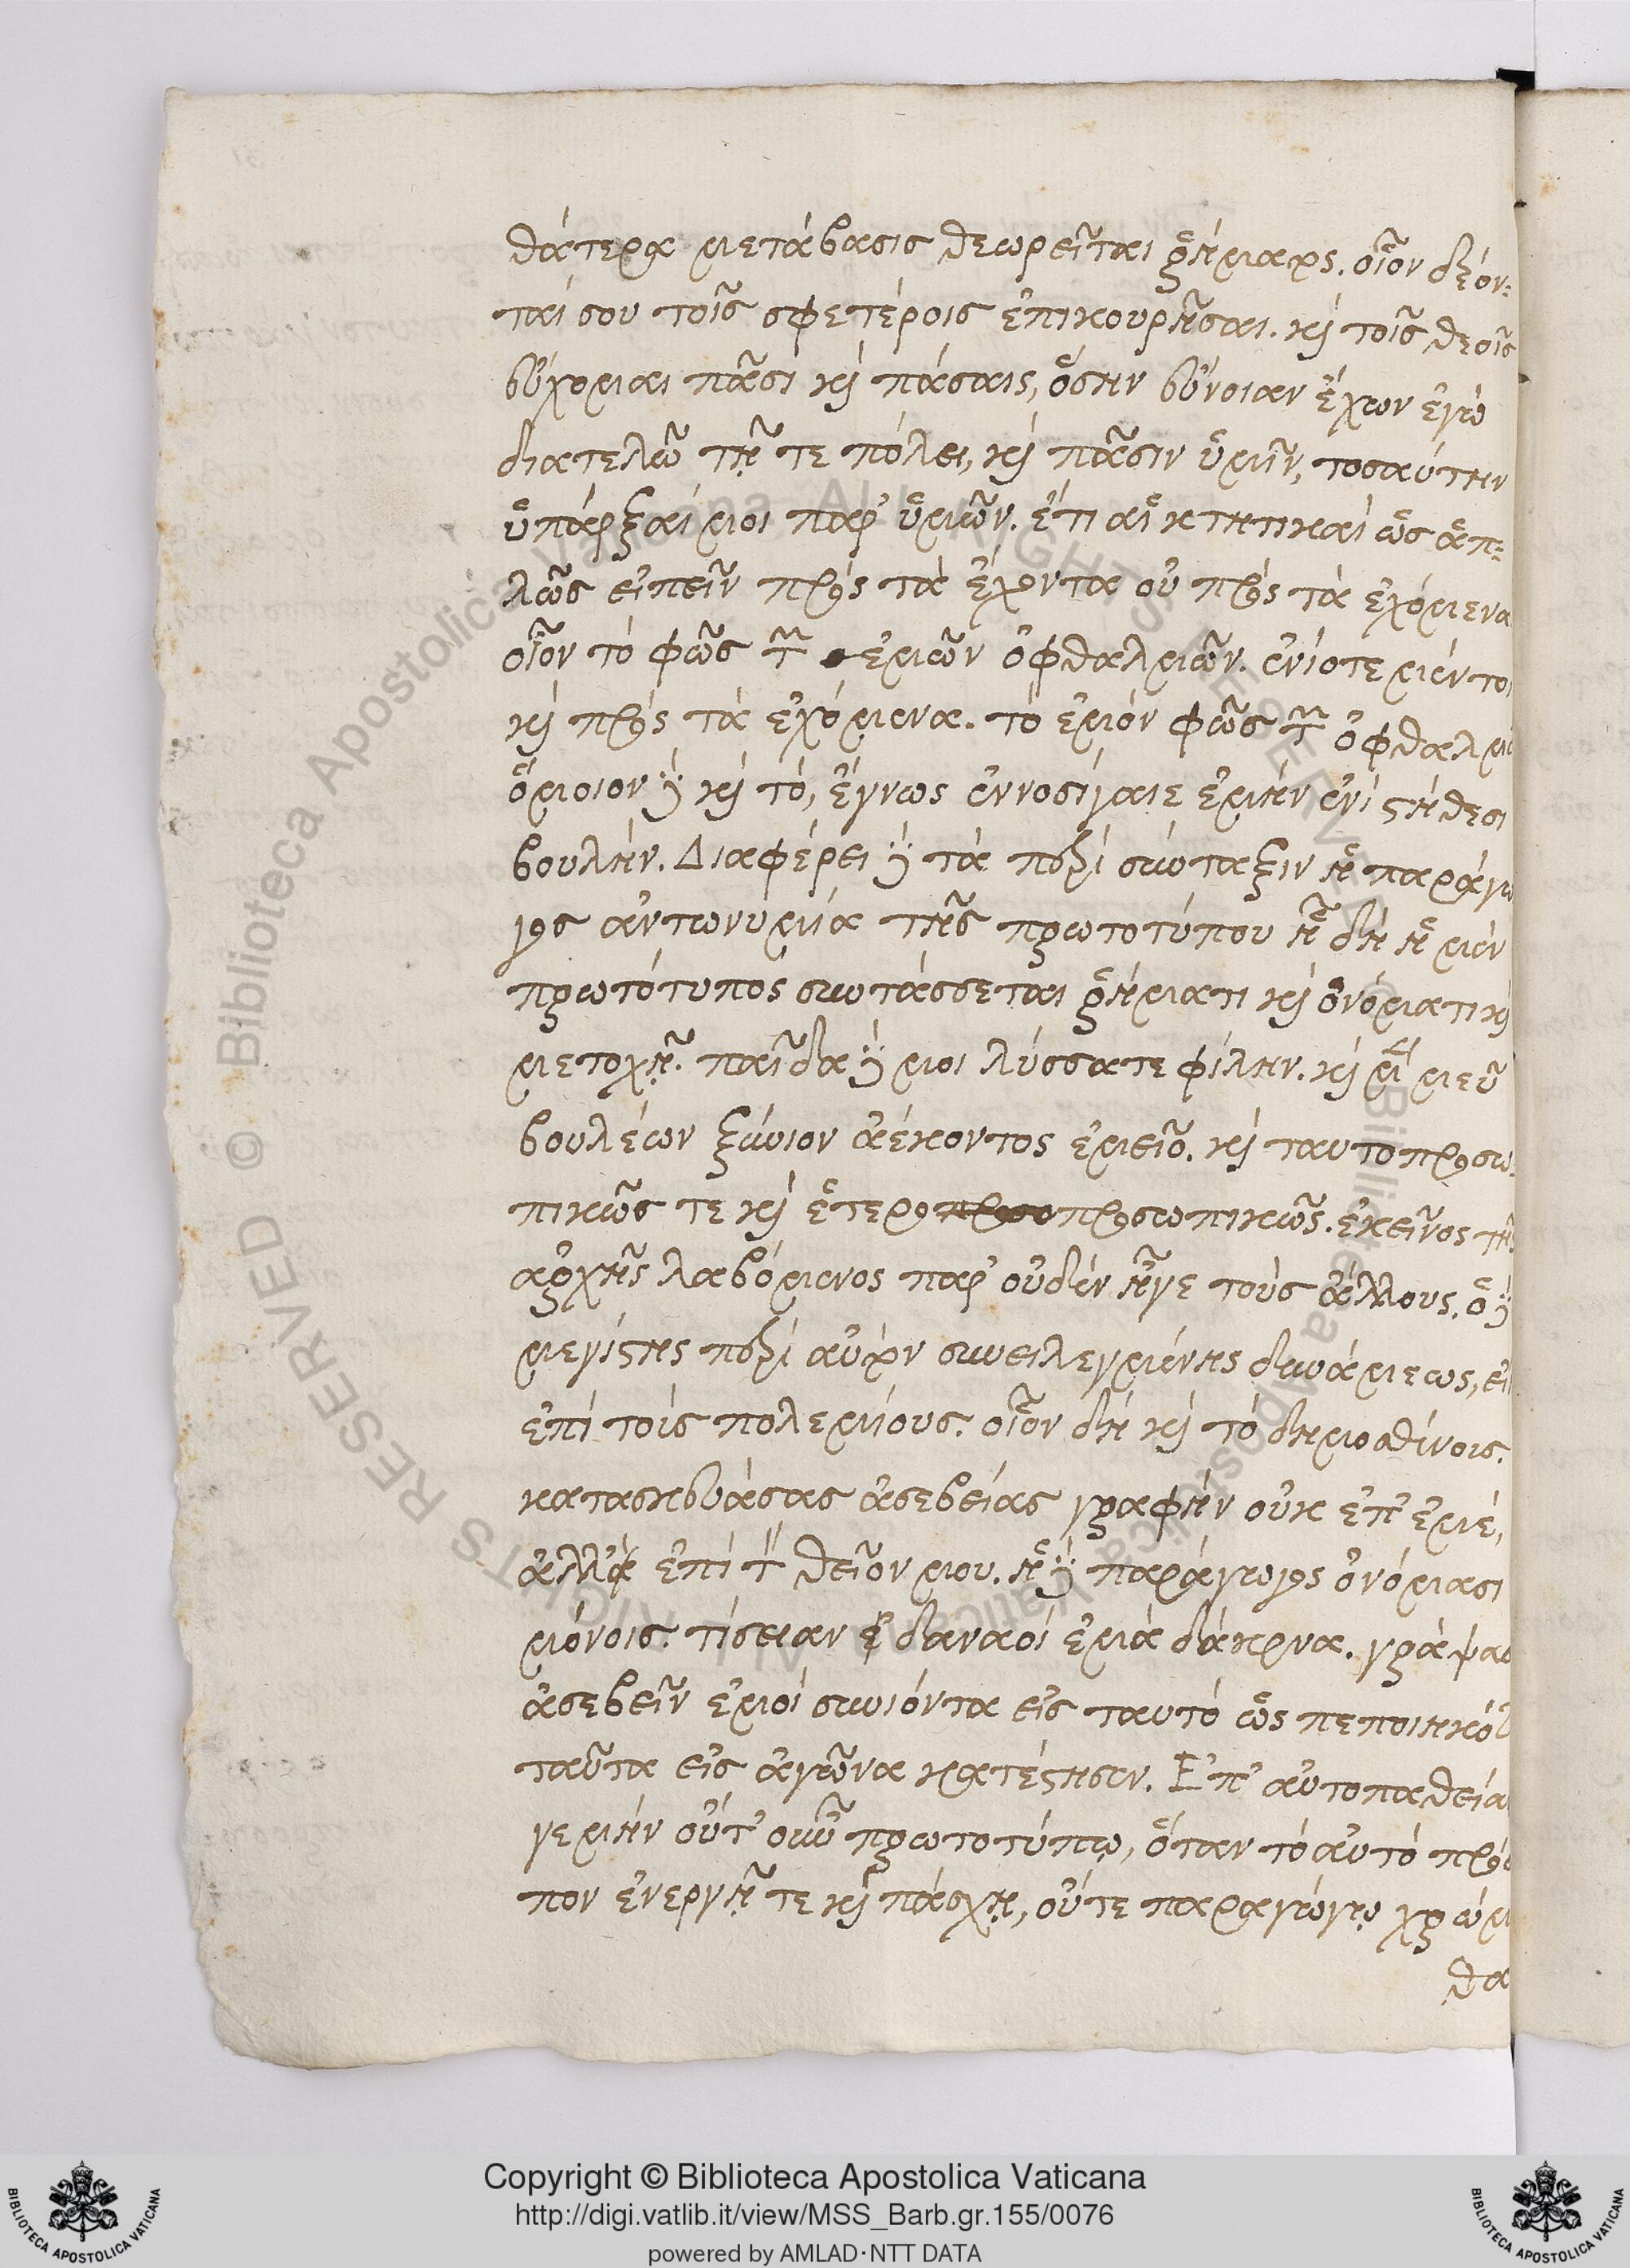 θάτερα μετάβασις θεωρεῖται ῥήματος. οἷον δέον-
ταί σου τοῖς σφετέροις ἐπικουρῆσαι. καὶ τοῖς θεοῖς
εὔχομαι πᾶσι καὶ πάσαις, ὅσην εὔνοιαν ἔχων ἐγὼ
διατελῶ τῇ τε πόλει, καὶ πᾶσιν ὑμῖν, τοσαύτην
ὑπάρξαί μοι παρ' ὑμῶν. ἔτι αἱ κτητικαὶ ὡς ἁπ-
λῶς εἰπεῖν πρὸς τὰ ἔχοντα οὐ πρὸς τὰ ἐχόμενα
οἷον τὸ φῶς τῶν ἐμῶν ὀφθαλμῶν. ἐνίοτε μέντοι
καὶ πρὸς τὰ ἐχόμενα. τὸ ἐμὸν φῶς τῶν ὀφθαλμῶ
ὅμοιον δὲ καὶ τὸ, ἔγνως ἐννοσίγαιε ἐμὴν ἐνὶ στήθεσι
βουλήν. Διαφέρει δὲ τὰ περὶ σύνταξιν ἡ παράγω
γος ἀντωνυμία τῆς πρωτοτύπου ᾗ δὴ ἡ μὲν
πρωτότυπος συντάσσεται ῥήματι καὶ ὀνόματι καὶ
μετοχῇ. παῖδα δέ μοι λύσσατε φίλην. καὶ μή μευ
βουλέων ξύνιον ἀέκοντος ἐμεῖο. καὶ ταυτοπροσω-
πικῶς τε καὶ ἑτεροπροσωπικῶς. ἐκεῖνος τῆς
ἀρχῆς λαβόμενος παρ' οὐδὲν ἦγε τοὺς ἄλλους. ὁ δὲ
μεγίστης περὶ αὐτὸν συνειλεγμένης δυνάμεως, εἰ
ἐπὶ τοὺς πολεμίους. οἷον δὴ καὶ τὸ δημοσθένοις.
κατασκευάσας ἀσεβείας γραφὴν οὐκ ἐπ' ἐμέ,
ἀλλ' ἐπὶ τὸν θεῖόν μου. ἡ δὲ παράγωγος ὀνόμασι
μόνοις. τίσειαν δαναοὶ ἐμὰ δάκρυα. γράψας
ἀσεβεῖν ἐμοὶ συνιόντα εἰς ταυτὸ ὡς πεποιηκότ
ταῦτα εἰς ἀγῶνα κατέστησεν. Ἐπ' αὐτοπαθεία
γε μὴν οὔτ' οὖν πρωτοτύπῳ, ὅταν τὸ αὐτὸ πρόσ
πον ἐνεργῇ τε καὶ πάσχῃ, οὔτε παραγώγῳ χρώμ
θα
Copyright © Biblioteca Apostolica Vaticana
http://digi.vatlib.it/view/MSS_Barb.gr.155/0076
powered by AMLAD·NTT DATA